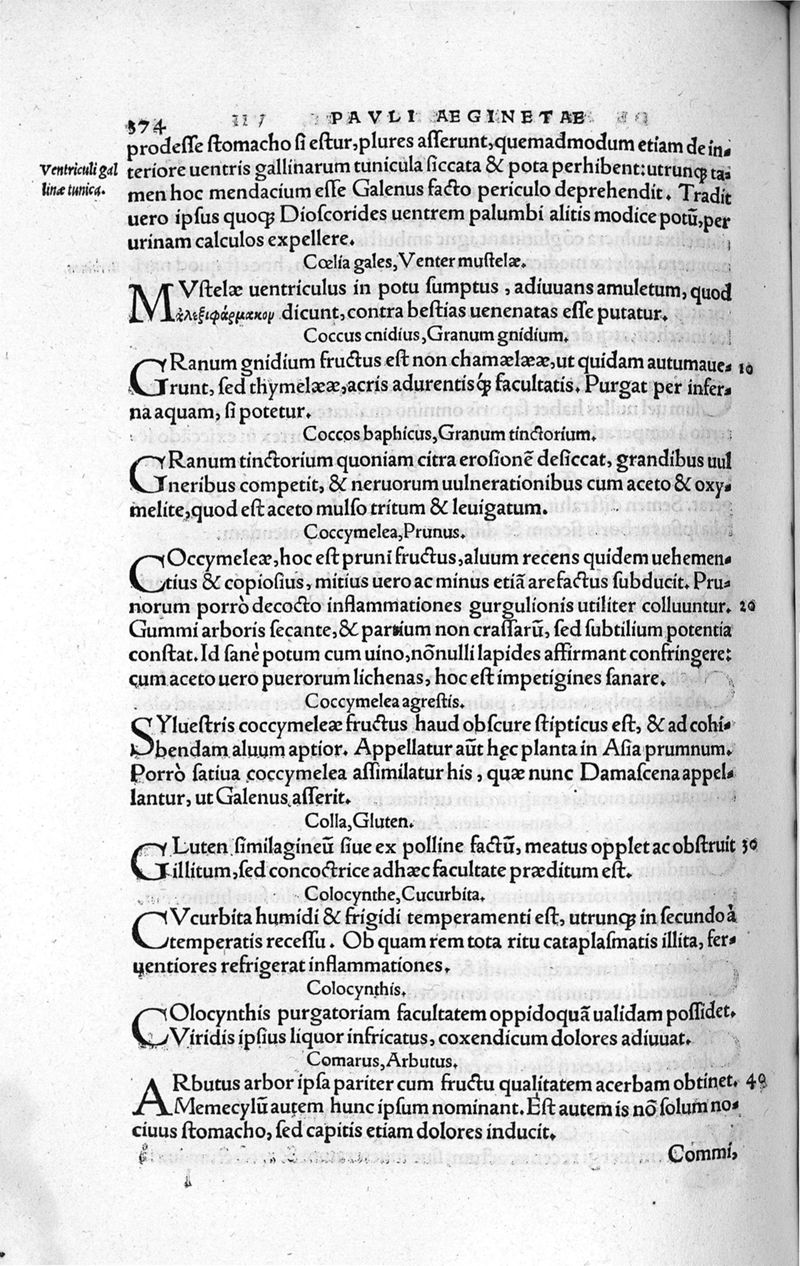 374 PAVLI AEGINETAE
prodesse stomacho si estur, plures asserunt, quemadmodum etiam de in-
Ventriculi gal
linæ tunica.
teriore uentris gallinarum tunicula siccata & pota perhibent: utrunq; ta-
men hoc mendacium esse Galenus facto periculo deprehendit. Tradit
uero ipsus quoq; Dioscorides uentrem palumbi alitis modice potū, per
urinam calculos expellere.
Cœlia gales, Venter mustelæ.
MVstelæ uentriculus in potu sumptus, adiuuans amuletum, quod
ἀλεξιφάρμακον dicunt, contra bestias uenenatas esse putatur.
Coccus cnidius, Granum gnidium.
GRanum gnidium fructus est non chamælææ, ut quidam autumaue- 10
runt, sed thymelææ, acris adurentisq; facultatis. Purgat per infer-
na aquam, si potetur.
Coccos baphicus, Granum tinctorium.
GRanum tinctorium quoniam citra erosionē desiccat, grandibus uul
neribus competit, & neruorum uulnerationibus cum aceto & oxy-
melite, quod est aceto mulso tritum & leuigatum.
Coccymelea, Prunus.
COccymeleæ, hoc est pruni fructus, aluum recens quidem uehemen-
tius & copiosius, mitius uero ac minus etiā arefactus subducit. Pru-
norum porrò decocto inflammationes gurgulionis utiliter colluuntur. 20
Gummi arboris secante, & partium non crassarū, sed subtilium potentia
constat. Id sanè potum cum uino, nōnulli lapides affirmant confringere:
cum aceto uero puerorum lichenas, hoc est impetigines sanare.
Coccymelea agrestis.
SYluestris coccymeleæ fructus haud obscure stipticus est, & ad cohi-
bendam aluum aptior. Appellatur aūt hęc planta in Asia prumnum.
Porrò satiua coccymelea assimilatur his, quæ nunc Damascena appel-
lantur, ut Galenus asserit.
Colla, Gluten.
GLuten similagineū siue ex polline factū, meatus opplet ac obstruit 30
illitum, sed concoctrice adhæc facultate præditum est.
Colocynthe, Cucurbita.
CVcurbita humidi & frigidi temperamenti est, utrunq; in secundo à
temperatis recessu. Ob quam rem tota ritu cataplasmatis illita, fer-
uentiores refrigerat inflammationes.
Colocynthis.
COlocynthis purgatoriam facultatem oppidoquā ualidam possidet.
Viridis ipsius liquor infricatus, coxendicum dolores adiuuat.
Comarus, Arbutus.
ARbutus arbor ipsa pariter cum fructu qualitatem acerbam obtinet. 40
Memecylū autem hunc ipsum nominant. Est autem is nō solum no-
ciuus stomacho, sed capitis etiam dolores inducit.
Commi,